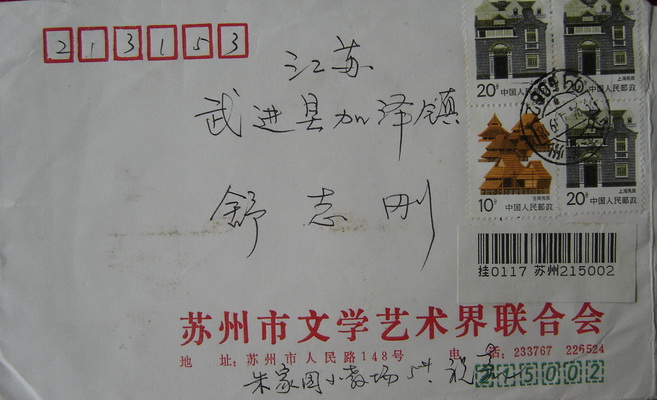 213153
江苏
武进县加泽镇
舒志刚
上海民居 上海民居
20分 中国人民邮政 20分 中国人民邮政
云南民居 上海民居
10分 中国人民邮政 20分 中国人民邮政
挂0117 苏州215002
苏州市文学艺术界联合会
地 址:苏州市人民路148号 电 话:233767 226524
朱家园小教场
215002